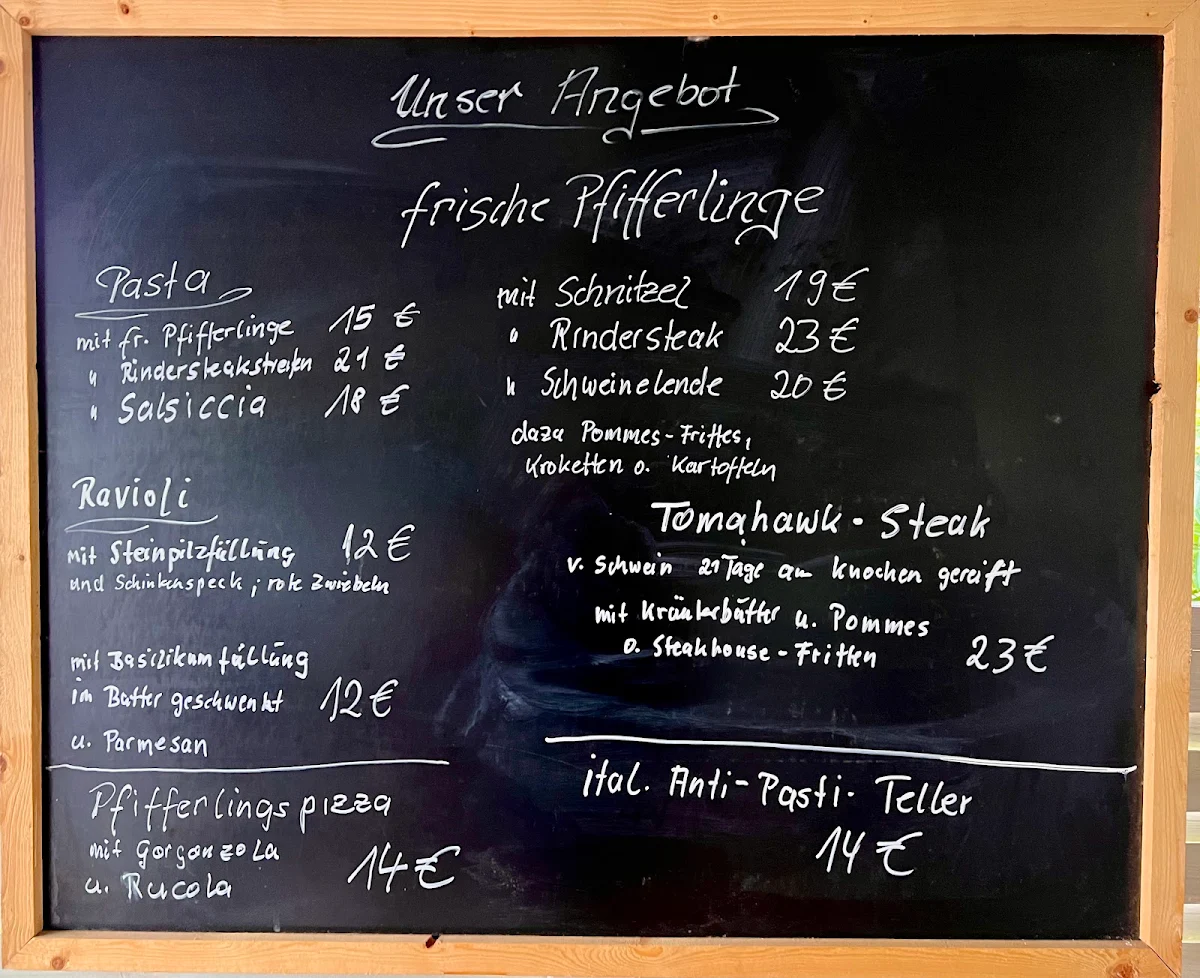 Unser Angebot
frische Pfifferlinge
Pasta
mit fr. Pfifferlinge 15 €
" Rindersteakstreifen 21 €
" Salsiccia 18 €
Ravioli
mit Steinpilzfüllung 12 €
und Schinkenspeck, rote Zwiebeln
mit Basilikumfüllung
in Butter geschwenkt 12 €
u. Parmesan
Pfifferlingspizza
mit Gorgonzola
u. Rucola 14 €
mit Schnitzel 19 €
" Rindersteak 23 €
" Schweinelende 20 €
dazu Pommes-Frittes,
Kroketten o. Kartoffeln
Tomahawk-Steak
v. Schwein 21 Tage am Knochen gereift
mit Kräuterbutter u. Pommes
o. Steakhouse-Fritten 23 €
ital. Anti-Pasti-Teller
14 €